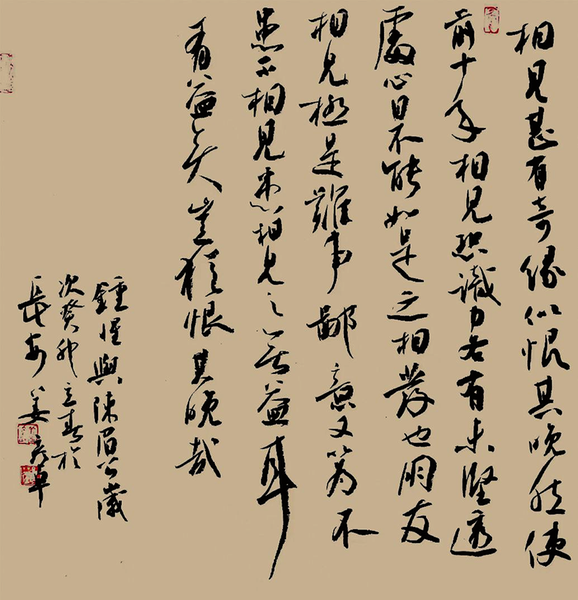 相見甚有奇緣似恨其晚然使
前十年相見恐識力各有未堅透
處心目不能如是之相發也朋友
相見極是難事鄙意又為不
患不相見患相見之無益耳
有益矣豈猶恨其晚哉
鍾惺與陳眉公歲
次癸卯立春於
長安姜草